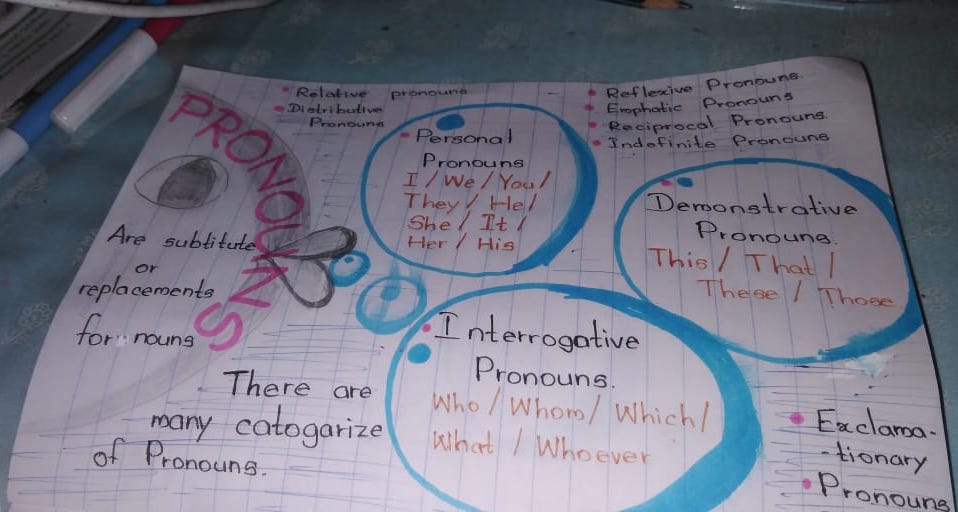 PRONOUNS
Are subtitute
or
replacements
for nouns
There are
many catogarize
of Pronouns.
Relative pronouns
Distributive
Pronouns
Personal
Pronouns
I / We / You /
They / He /
She / It /
Her / His
Reflexive Pronouns
Emphatic Pronouns
Reciprocal Pronouns
Indefinite Pronouns
Demonstrative
Pronouns.
This / That /
These / Those
Interrogative
Pronouns.
Who / Whom / Which /
What / Whoever
Exclama-
-tionary
Pronouns